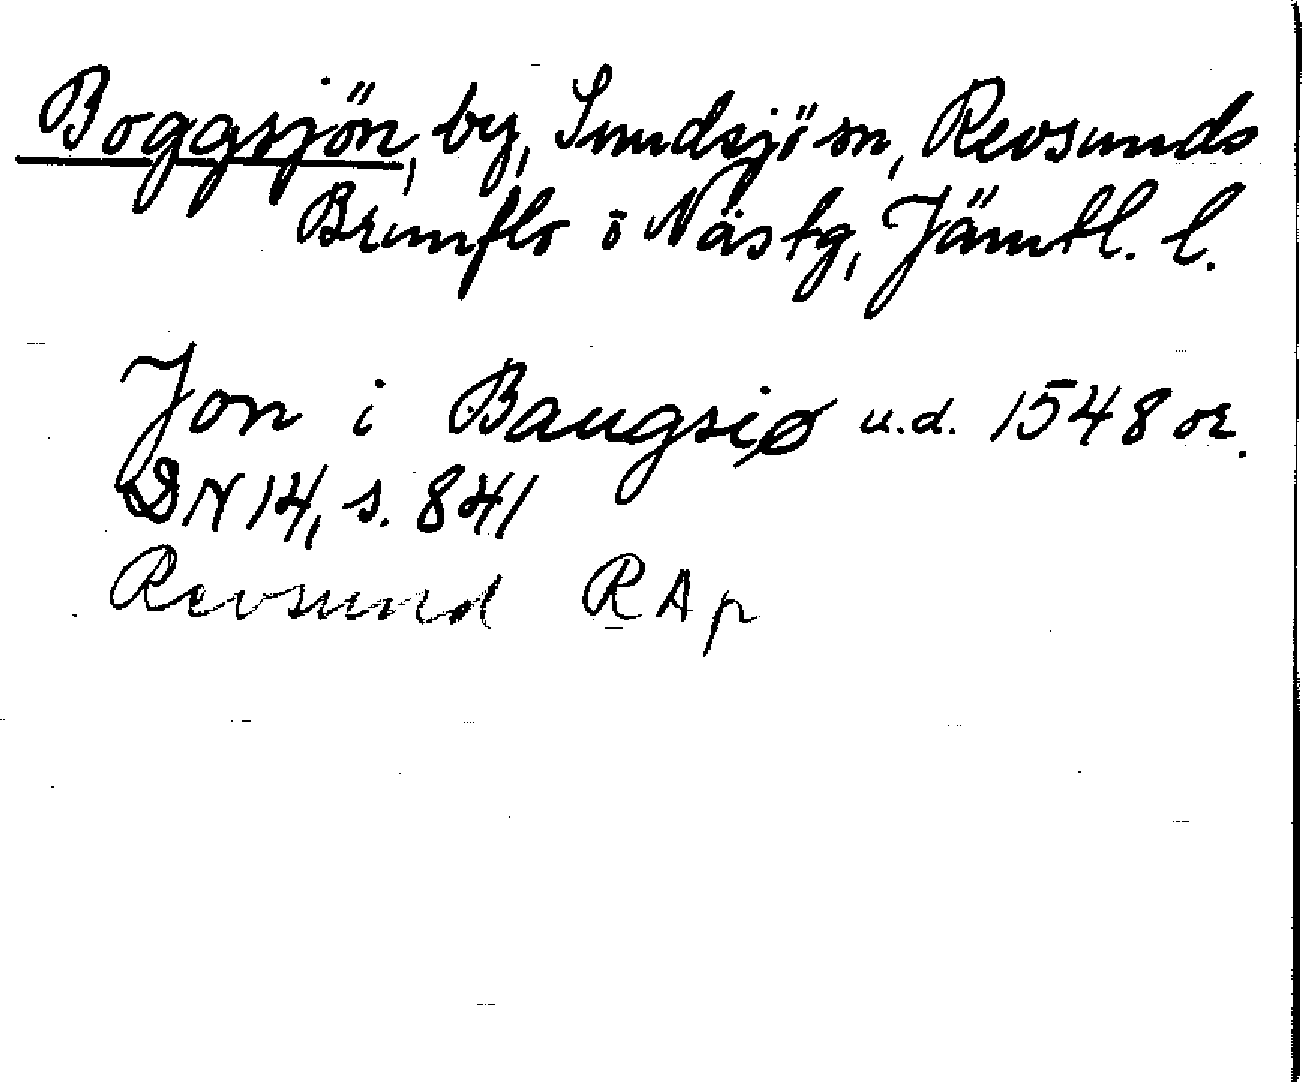 Boggsjön, by, Sundsjö sn, Revsunds
Brunflo o Näs tg, Jämtl. l.
Jon i Baugsiø u.d. 1548 or.
DN 14, s. 841
Revsund RAp